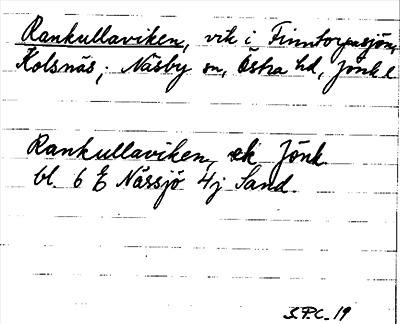 Rankullaviken, vik i Finntorpasjön,
Kolsnäs, Näsby sn, Östra hd, Jönk l
Rankullaviken, ek Jönk
bl. 6 E Nässjö 4j Sand.
S.P.C. 19